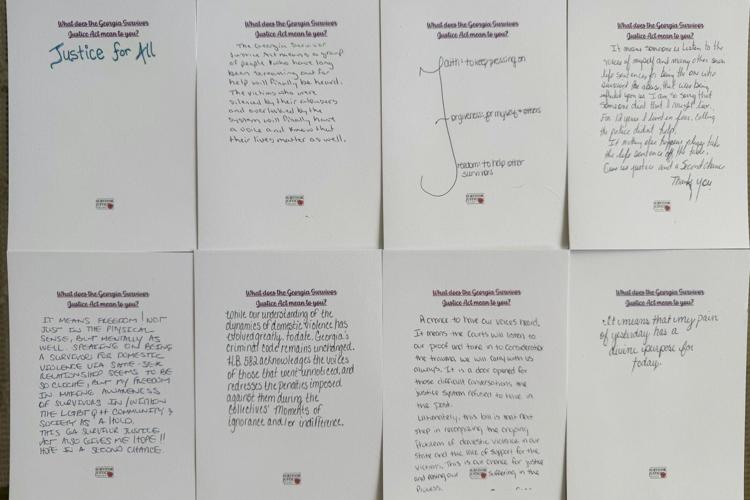 What does the Georgia Survivor
Justice Act mean to you?
Justice for All
What does the Georgia Survivor
Justice Act mean to you?
The Georgia Survivor
Justice Act means a group
of people who have long
been screaming out for
help will finally be heard.
The victims who were
silenced by their abusers
and overlooked by the
system will finally have
a voice and know that
their lives matter as well.
What does the Georgia Survivor
Justice Act mean to you?
Faith: to keep pressing on
Forgiveness: for myself + others
Freedom: to help other
survivors
What does the Georgia Survivor
Justice Act mean to you?
It means someone is listen to the
voices of myself and many other
life sentences, for being the one who
survived the abuse, that was being
upon us. I am so sorry that
someone died that I love.
For 12 years I lived in fear. Calling
the police didnt help.
If nothing else happens please take
the life sentence off the table.
Give us justice and a Second chance
Thank you
What does the Georgia Survivor
Justice Act mean to you?
IT MEANS FREEDOM! NOT
JUST IN THE PHYSICAL
SENSE, BUT MENTALLY AS
WELL. SPEAKING ON BEING
A SURVIVOR FOR DOMESTIC
VIOLENCE VIA SAME-SEX
RELATIONSHIP SEEMS TO BE
SO CLICHE, BUT MY FREEDOM
IN MAKING AWARENESS
OF SURVIVORS IN/WITHIN
THE LGBTQ++ COMMUNITY &
SOCIETY AS A HOLD.
THIS GA SURVIVOR JUSTICE
ACT ALSO GIVES ME HOPE!!
HOPE IN A SECOND CHANCE.
What does the Georgia Survivor
Justice Act mean to you?
While our understanding of the
dynamics of domestic violence has
evolved greatly, to date, Georgia's
criminal code remains unchanged.
H.B. 582 acknowledges the voices
of those that went unnoticed, and
redresses the penalties imposed
against them during the
collectives' moments of
ignorance and/or indifference.
What does the Georgia Survivor
Justice Act mean to you?
A chance to have our voices heard.
It means the Courts will listen to
our proof and take in to consideration
the trauma we will carry with us
always. It is a door opened for
those difficult conversations the
justice system refused to have in
the past.
Ultimately, this bill is that next
step in recognizing the ongoing
problem of domestic violence in our
state and the lack of support for the
victims. This is our chance for justice
and our suffering in the
Process.
What does the Georgia Survivor
Justice Act mean to you?
It means that my pain
of yesterday has a
divine purpose for
today.